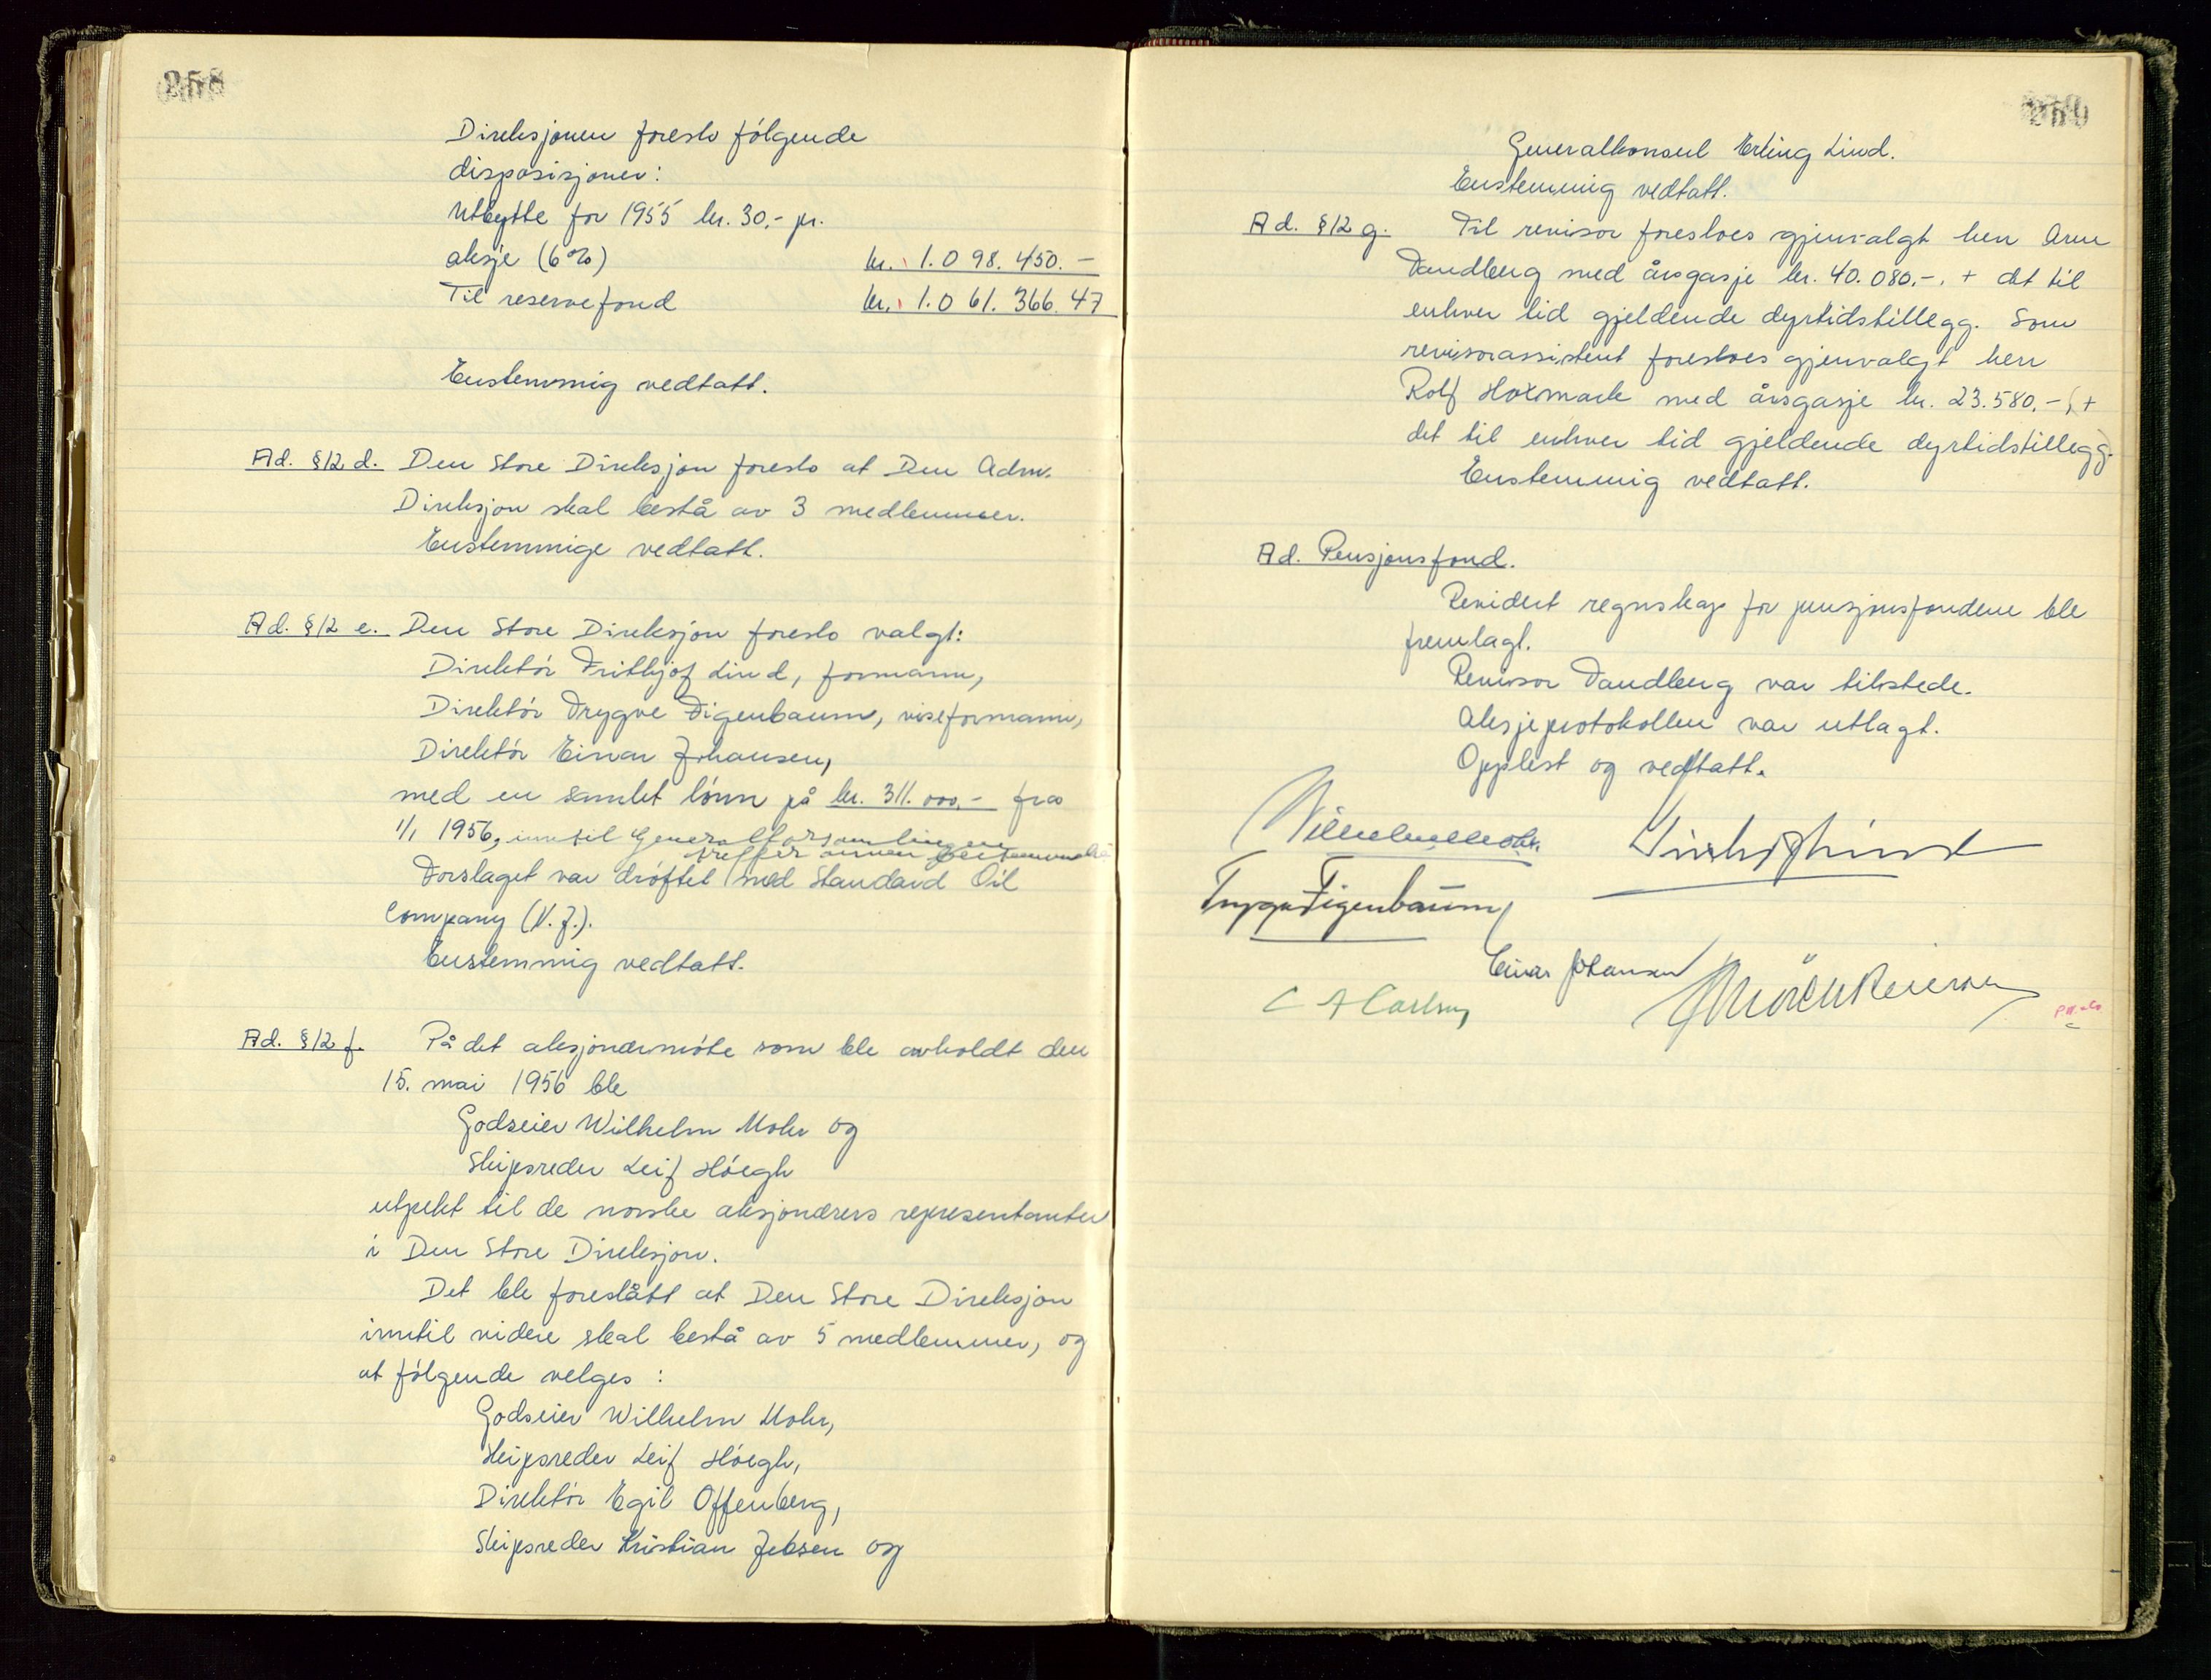 258
Direksjonen foreslo følgende
disposisjoner:
Utbytte for 1955 kr. 30.- pr.
aksje (6%) kr. 1.098.450.-
Til reservefond kr. 1.061.366.47
Enstemmig vedtatt.
Ad. §12 d. Den Store Direksjon foreslo at Den Adm.
Direksjon skal bestå av 3 medlemmer.
Enstemmige vedtatt.
Ad. §12 e. Den Store Direksjon foreslo valgt:
Direktør Frithjof Lind, formann,
Direktør Trygve Figenbaum, viseformann,
Direktør Einar Johansen,
med en samlet lønn på kr. 311.000,- fra
1/1 1956, inntil Generalforsamlingen
treffer annen bestemmelse
Forslaget var drøftet med Standard Oil
Company (N.J.).
Enstemmig vedtatt.
Ad. §12 f. På det aksjonærmøte som ble avholdt den
15. mai 1956 ble
Godseier Wilhelm Mohr og
Skipsreder Leif Høegh
utpekt til de norske aksjonærers representanter
i Den Store Direksjon.
Det ble foreslått at Den Store Direksjon
inntil videre skal bestå av 5 medlemmer, og
at følgende velges :
Godseier Wilhelm Mohr,
Skipsreder Leif Høegh,
Direktør Egil Offenberg,
Skipsreder Kristian Jebsen og
Generalkonsul Erling Lind.
Enstemmig vedtatt.
Ad. §12 g. Til revisor foresloes gjenvalgt herr Arne
Tandberg med årsgasje kr. 40.080,-, + det til
enhver tid gjeldende dyrtidstillegg. Som
revisorassistent foresloes gjenvalgt herr
Rolf Holmark med årsgasje kr. 23.580,-, +
det til enhver tid gjeldende dyrtidstillegg.
Enstemmig vedtatt.
Ad. Pensjonsfond.
Revidert regnskap for pensjonsfondene ble
fremlagt.
Revisor Tandberg var tilstede.
Aksjeprotokollen var utlagt.
Opplest og vedtatt.
Wilhelm Mohr. Frithjof Lind
Trygve Figenbaum
Einar Johansen
C A Carlsen